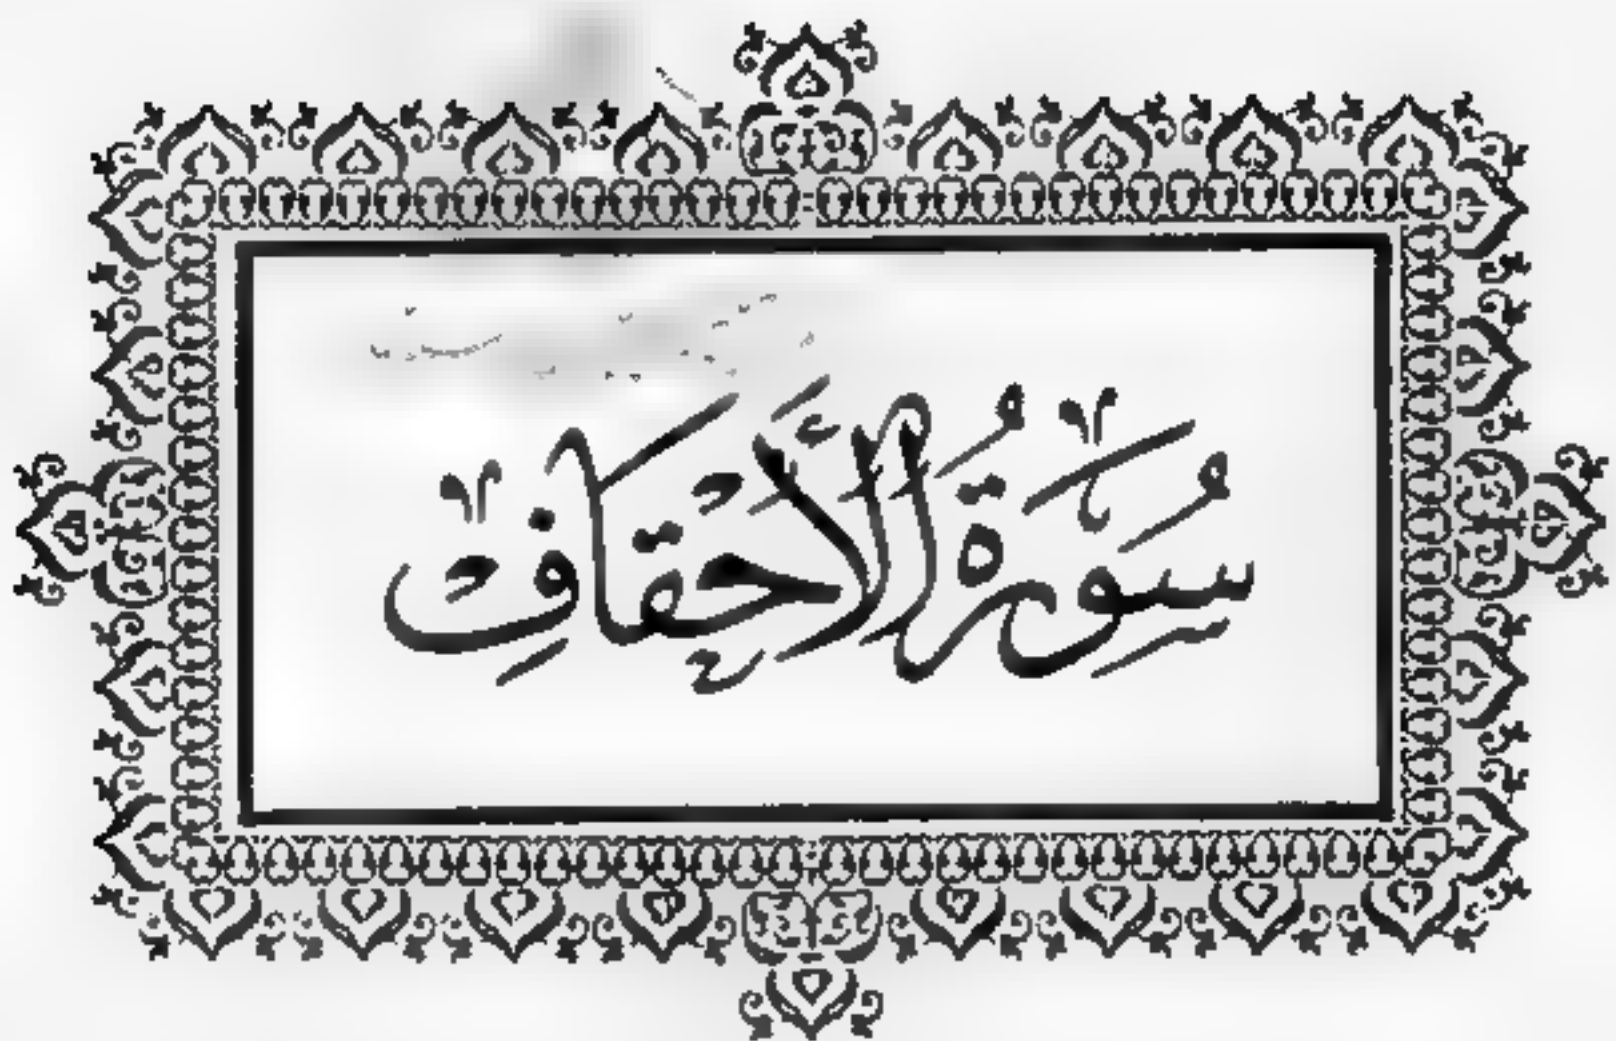 سُورَةُ الأَحْقَافِ